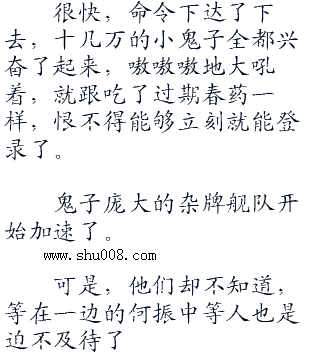 很快，命令下达了下
去，十几万的小鬼子全都兴
奋了起来，嗷嗷嗷地大吼
着，就跟吃了过期春药一
样，恨不得能够立刻就能登
录了。
鬼子庞大的杂牌舰队开
始加速了。
www.shu008.com
可是，他们却不知道，
等在一边的何振中等人也是
迫不及待了